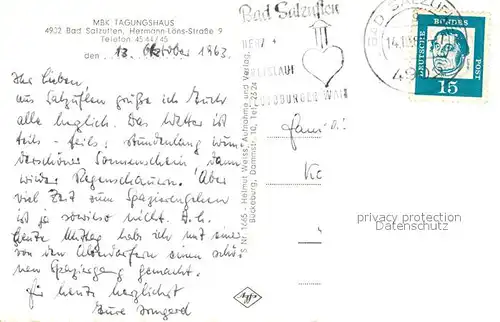 MBK TAGUNGSHAUS
4902 Bad Salzuflen, Hermann-Löns-Straße 9
Telefon 45 44/45
den 13. Oktober 1963.
Ihr Lieben
aus Salzuflen grüße ich Euch
alle herzlich. Das Wetter ist
teils - teils, stundenlang wun
derschöner Sonnenschein, dann
wieder Regenschauern. Aber
viel Zeit zum Spazierengehen
ist ja sowieso nicht. D.h.
heute Mittag hab ich mit einer
von den einen schö
nen Spaziergang gemacht.
Für heute herzlichst
Eure Irmgard
S Nr 1645 - Helmut Weiss, Aufnahme und Verlag,
Bückeburg, Dammstr. 10, Tel. 2524
Agfa
Bad Salzuflen
HERZ
KREISLAUF
TEUTOBURGER WALD
BAD SALZUFLEN
14.10.63
DEUTSCHE
BUNDES
POST
15
Fam
privacy protection
Datenschutz